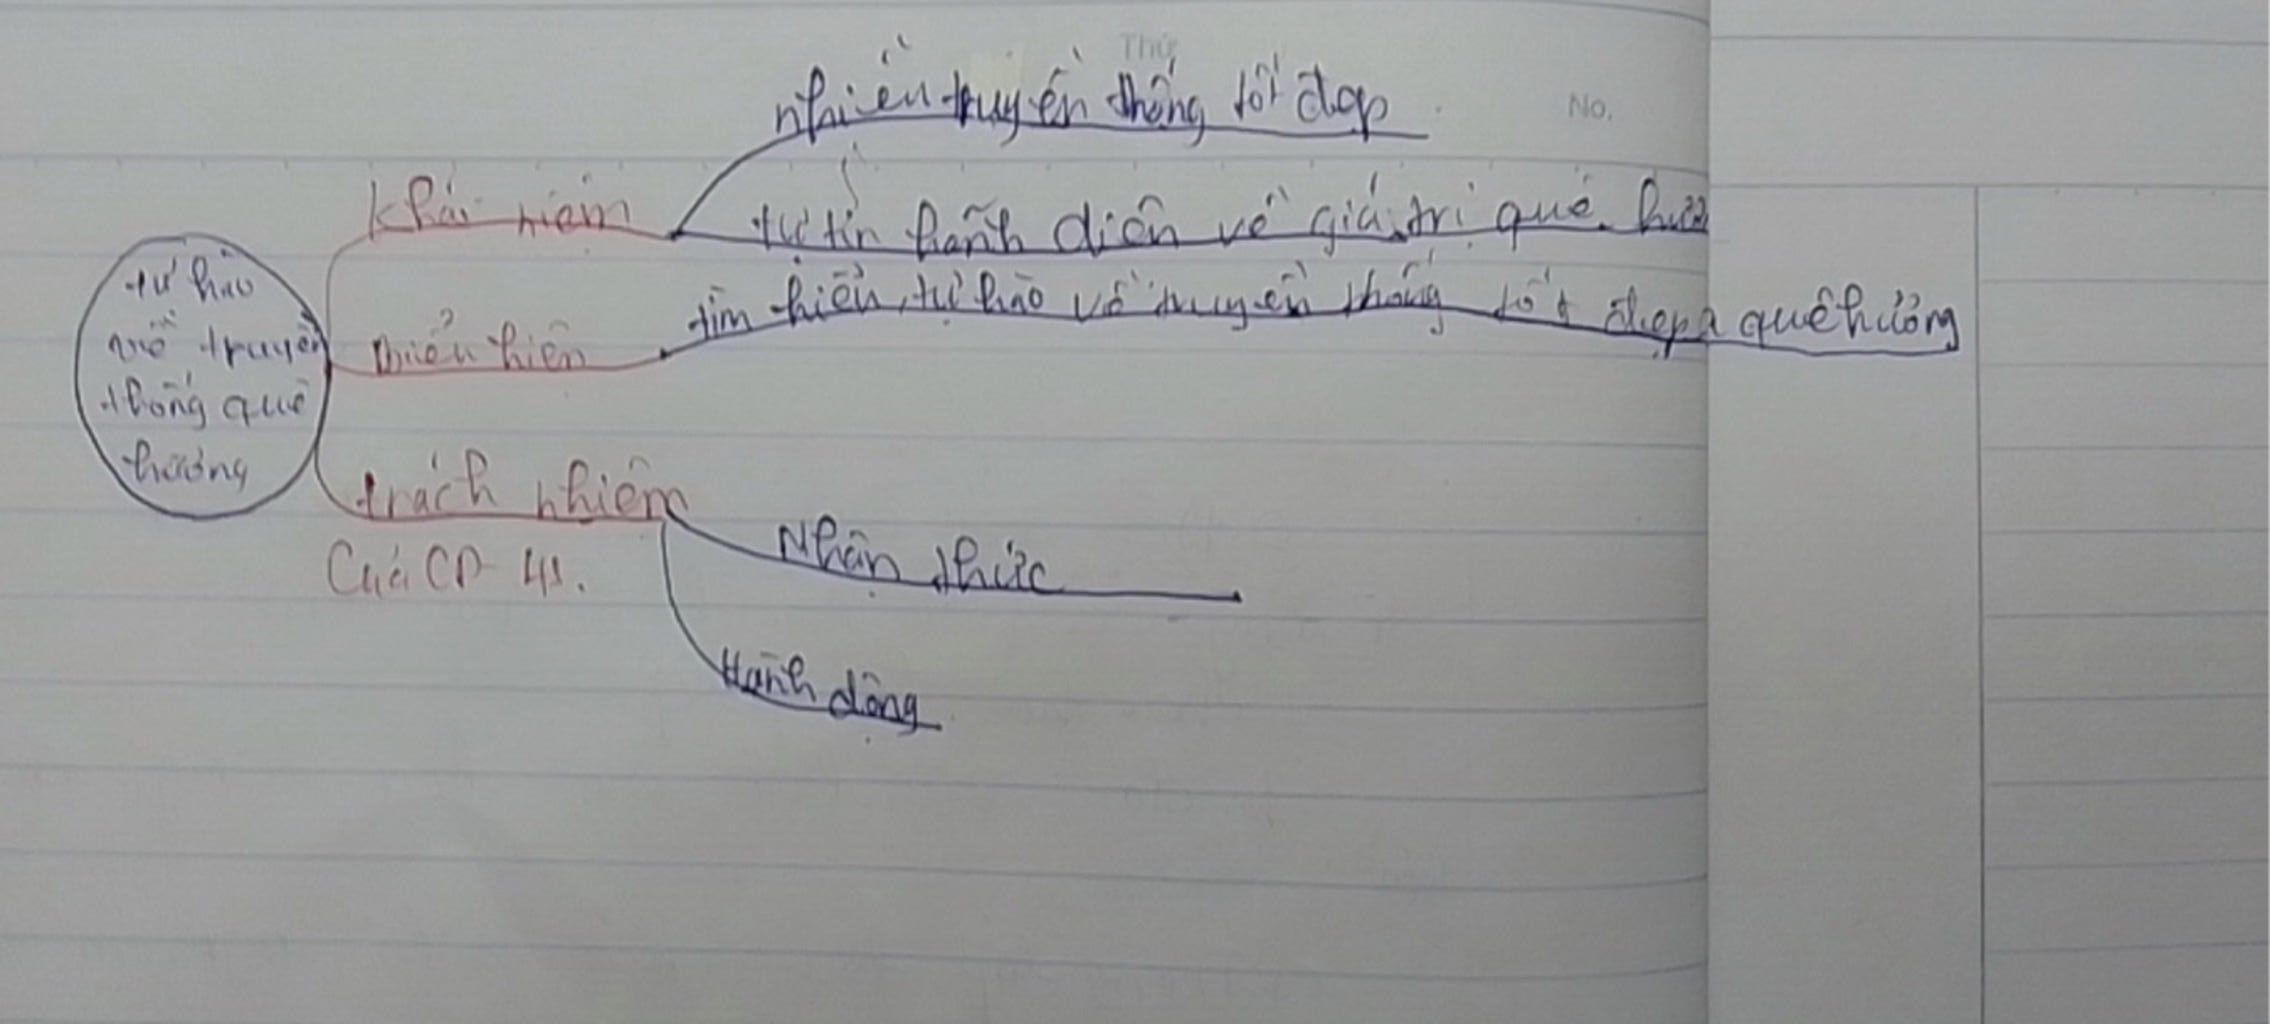 Thứ
nhiều truyền thống tốt đẹp
No.
khái niệm
tự tin hãnh diện về giá trị quê
tự hào
về truyền
thống quê
hương
tìm hiểu, tự hào về truyền thống tốt đẹp quê hương
biểu hiện
trách nhiệm
Của CD
Nhận thức
Hành động